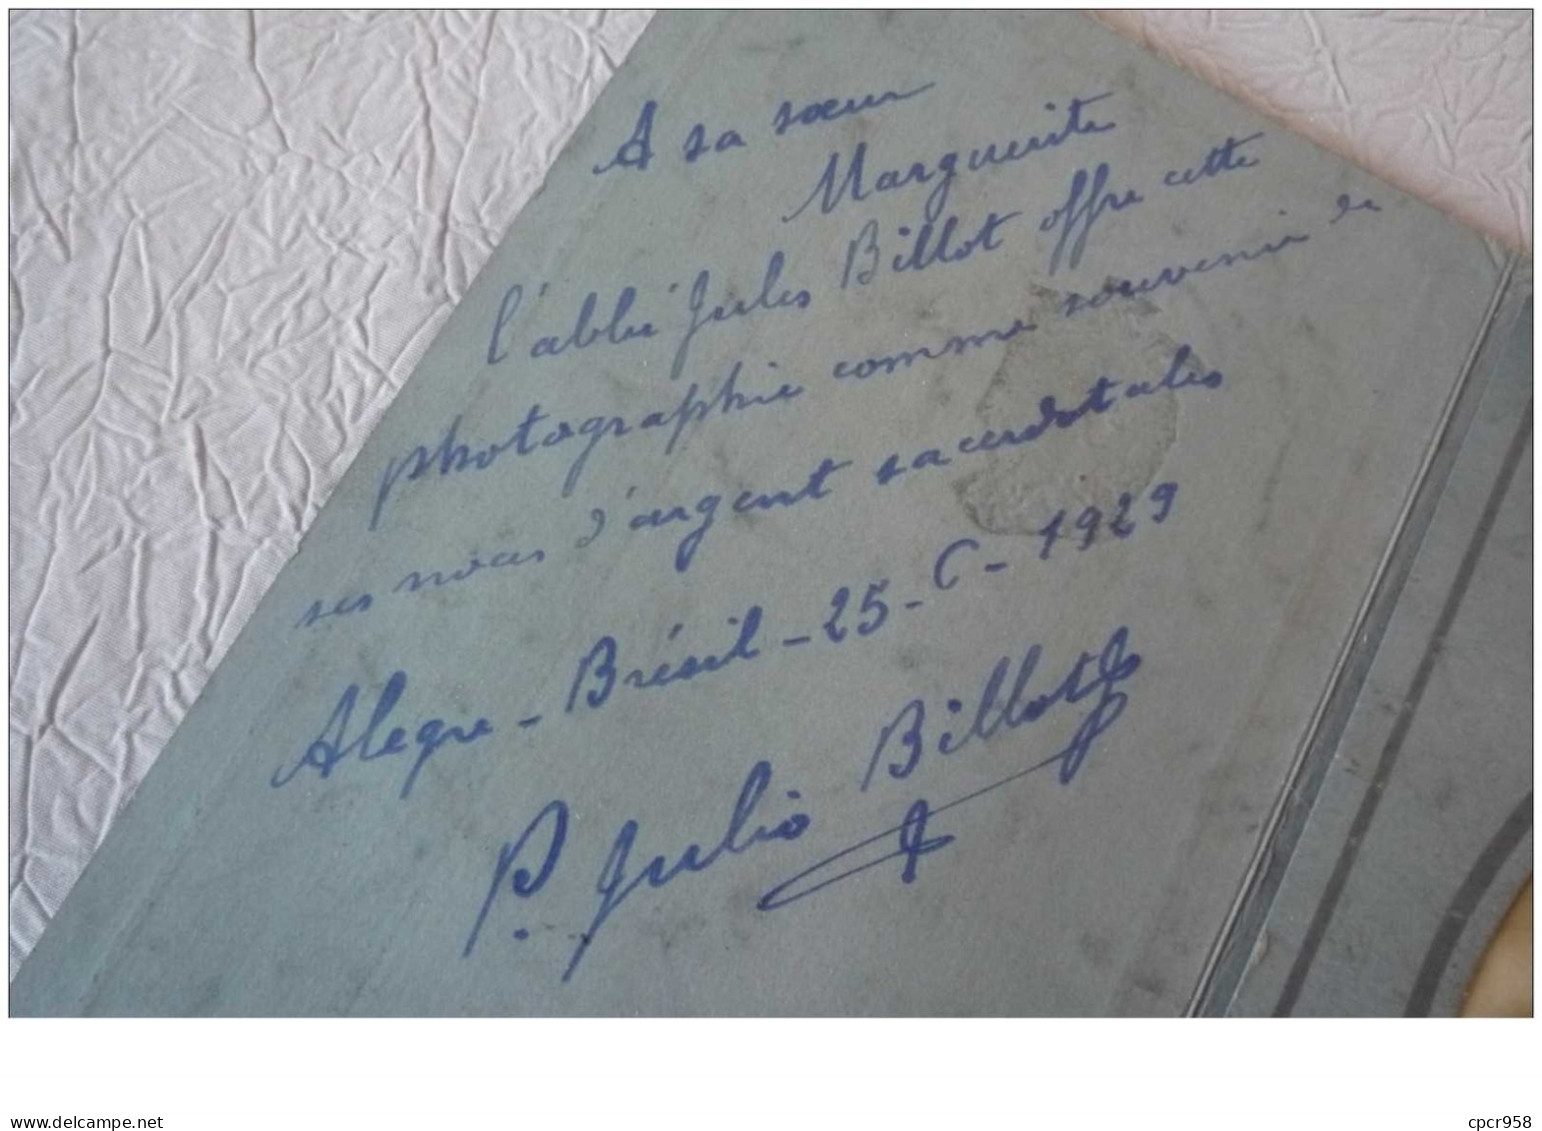 A sa sœur
Marguerite
l'abbé Jules Billot offre cette
photographie comme souvenir de
ses noces d'argent sacerdotales
Alegre - Brésil - 25 - 6 - 1929
P. Julio Billot
delcampe.net
cpcr958